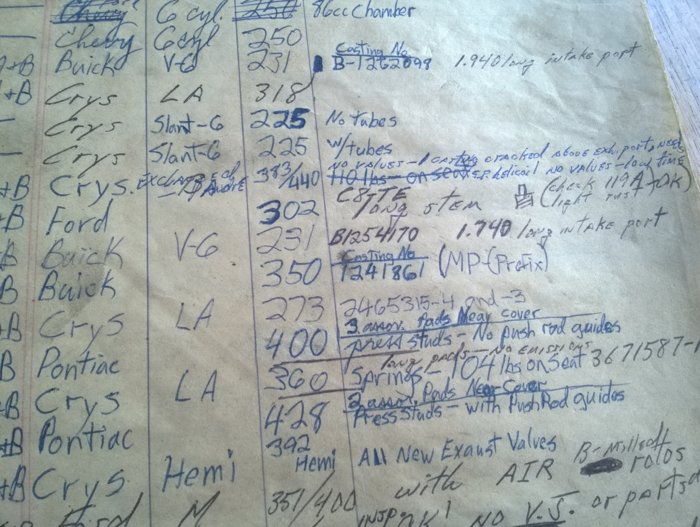 6 cyl. 250 86cc Chamber
Chevy 6 cyl 250
A+B Buick V-6 231 Casting No B-1262098 1.940 long intake port
+B Crys LA 318
— Crys Slant-6 225 No tubes
— Crys Slant-6 225 w/tubes
+B Crys. 383/440 No valves - 1 casting cracked above exh. port, need
110 lbs - on seat No valves - long time
B Ford 302 C8TE long stem (check 119A) OK light rust
B Buick V-6 231 B1254170 1.740 long intake port
B Buick 350 Casting No 1241861 (MP-(Prefix)
+B Crys LA 273 2465315-4 and -3
+B Pontiac 400 3 assor. Pads Near cover
press studs - No push rod guides
+B Crys LA 360 long pads - No emissions
Springs - 104 lbs on seat 3671587-1
+B Pontiac 428 2 assor. Pads Near Cover
Press Studs - with Push Rod guides
+B Crys Hemi 392 Hemi All New Exaust Valves
Ford M 351/400 with AIR B- rotos
insp. OK! NO V.J. or parts